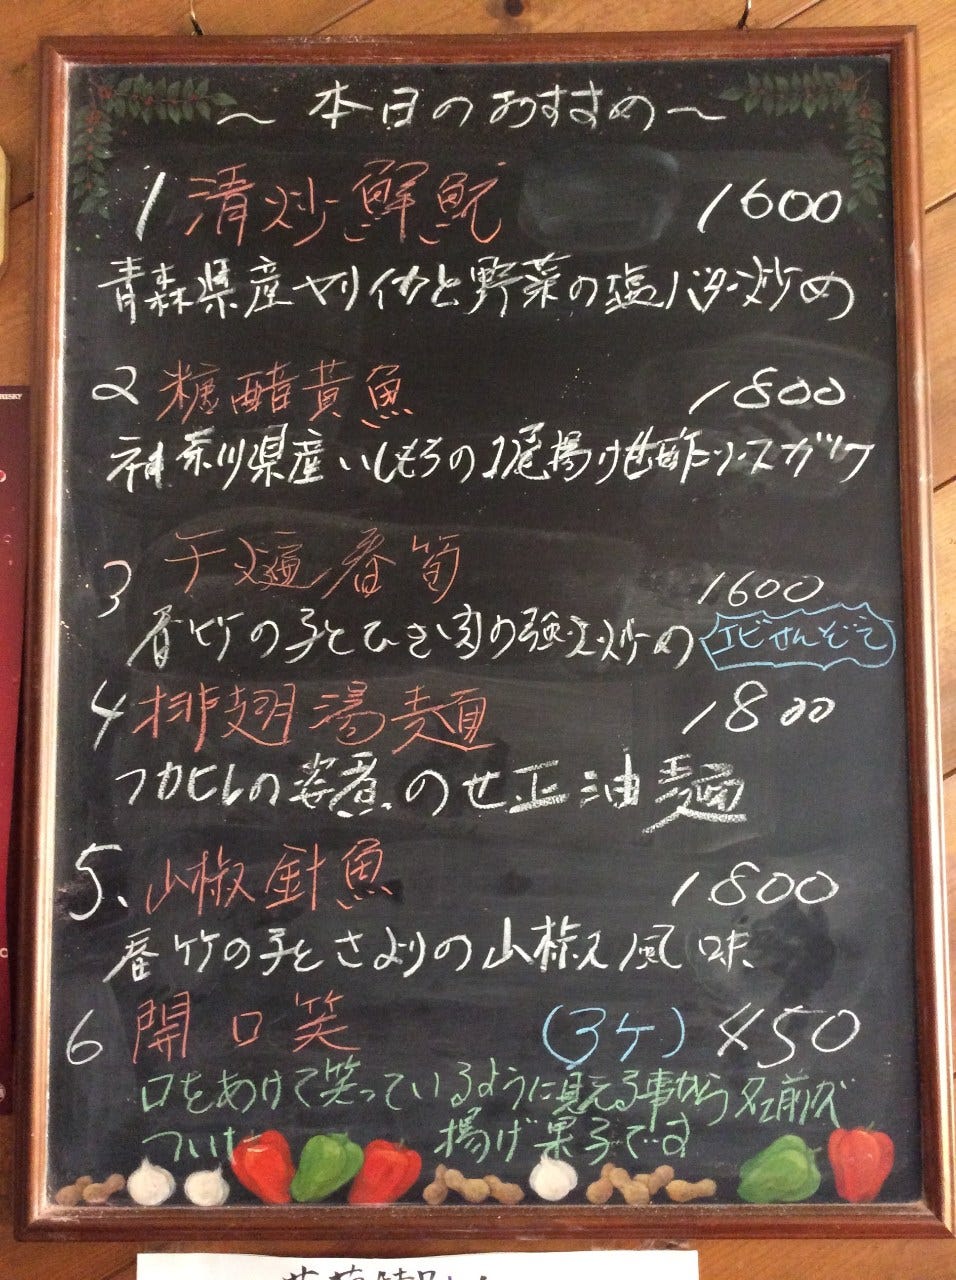 ～本日のおすすめ～
1 清炒鮮魷 1600
青森県産ヤリイカと野菜の塩バター炒め
2 糖醋黄魚 1800
神奈川県産いしもちの1尾揚げ甘酢ソースガケ
3 干 番筍 1600
番竹の子とひき肉の 炒め エビせんぞえ
4 排翅湯麺 1800
フカヒレの姿煮のせ正油麺
5. 山椒針魚 1800
番竹の子とさよりの山椒風味
6 開口笑 (3ケ) 450
口をあけて笑っているように見える事から名前が
ついた 揚げ菓子です